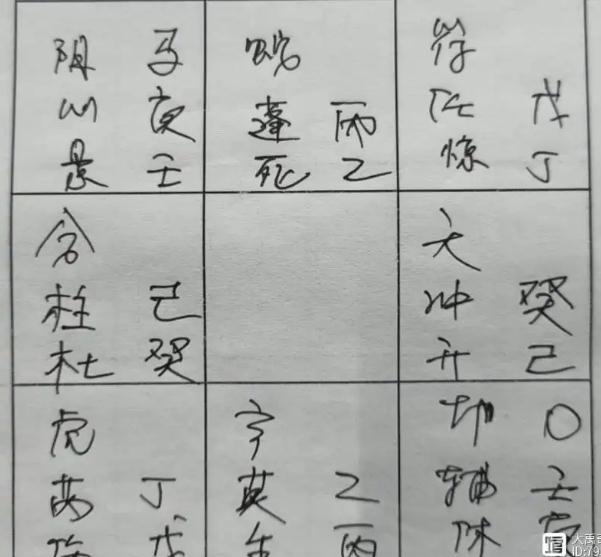 阴 马
心 庚
景 壬
蛇
蓬 丙
死 乙
符
任 戊
惊 丁
合
柱 己
杜 癸
天
冲 癸
开 己
虎
芮 丁
戊
宇
英 乙
生 丙
地 〇
辅 壬
休 庚
大禹